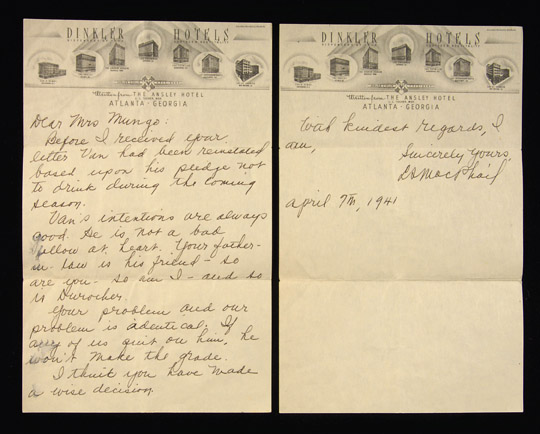 DINKLER HOTELS
Written from THE ANSLEY HOTEL
ATLANTA · GEORGIA
Dear Mrs Mungo:
Before I received your
letter Van had been reinstated
based upon his pledge not
to drink during the coming
season.
Van's intentions are always
good. He is not a bad
fellow at heart. Your father-
in-law is his friend – so
are you – so am I – and so
is Durocher.
Your problem and our
problem is identical. If
any of us quit on him, he
won't make the grade.
I think you have made
a wise decision.
DINKLER HOTELS
Written from THE ANSLEY HOTEL
ATLANTA · GEORGIA
With kindest regards, I
am,
Sincerely yours,
LS MacPhail
April 7th, 1941